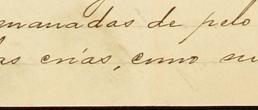 manadas de pelo
as crías, como su